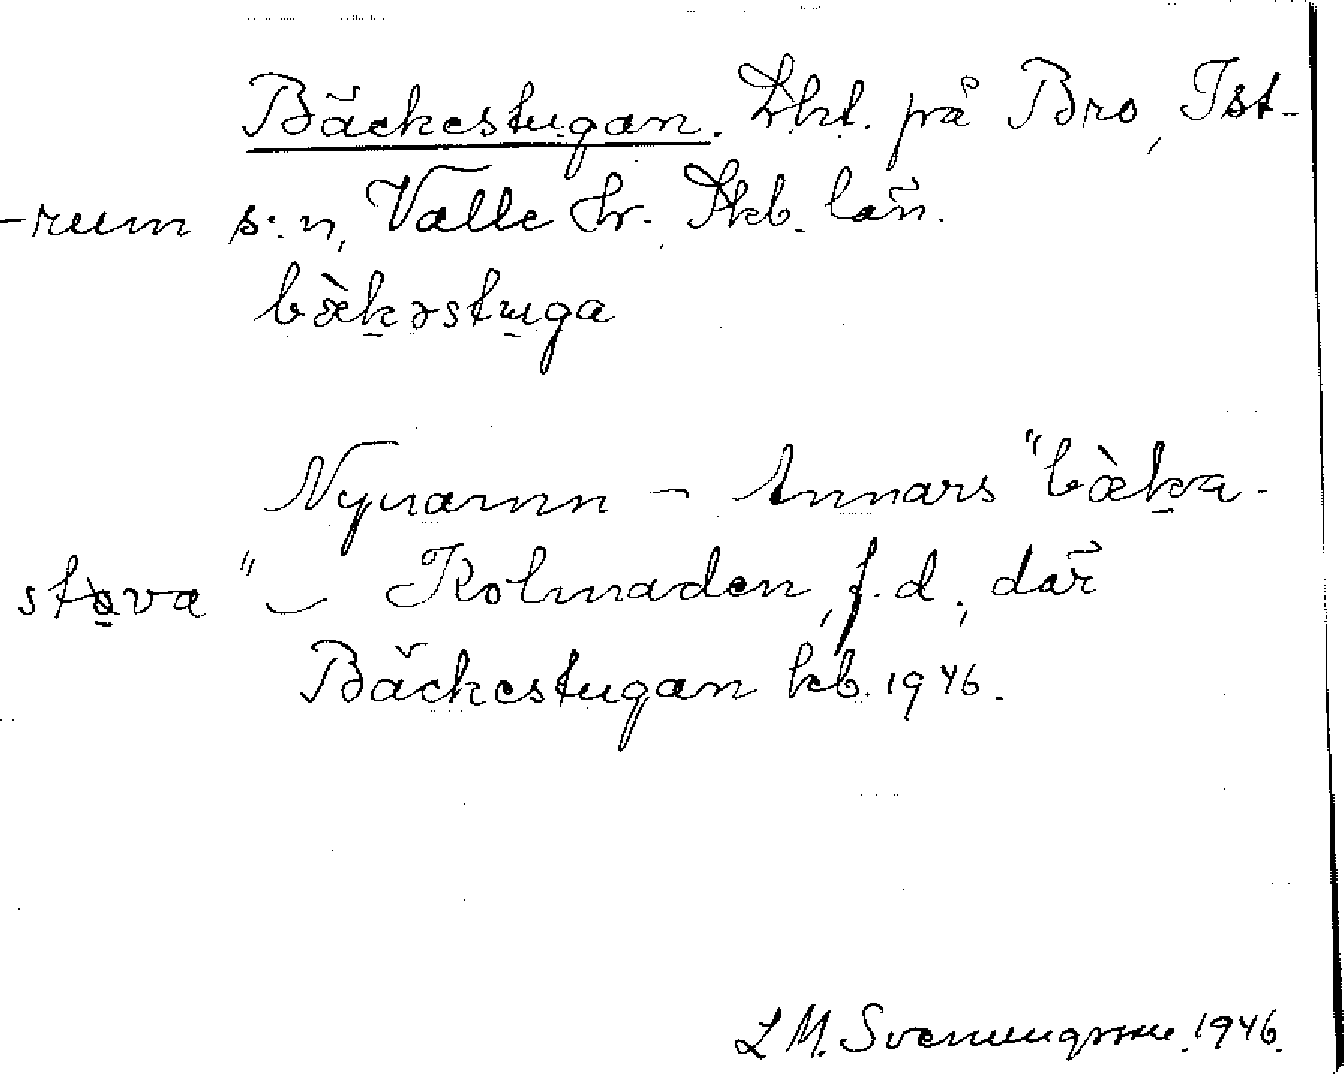 Bäckestugan. Lht. på Bro, Ist-
-rum s:n, Valle hr. Skb. län.
bæ̀kəstuga
Nynamn - Annars "bæ̀ka-
stòva" - Kolmaden, f.d., där
Bäckestugan kb. 1946.
L M. Svenungsson. 1946.